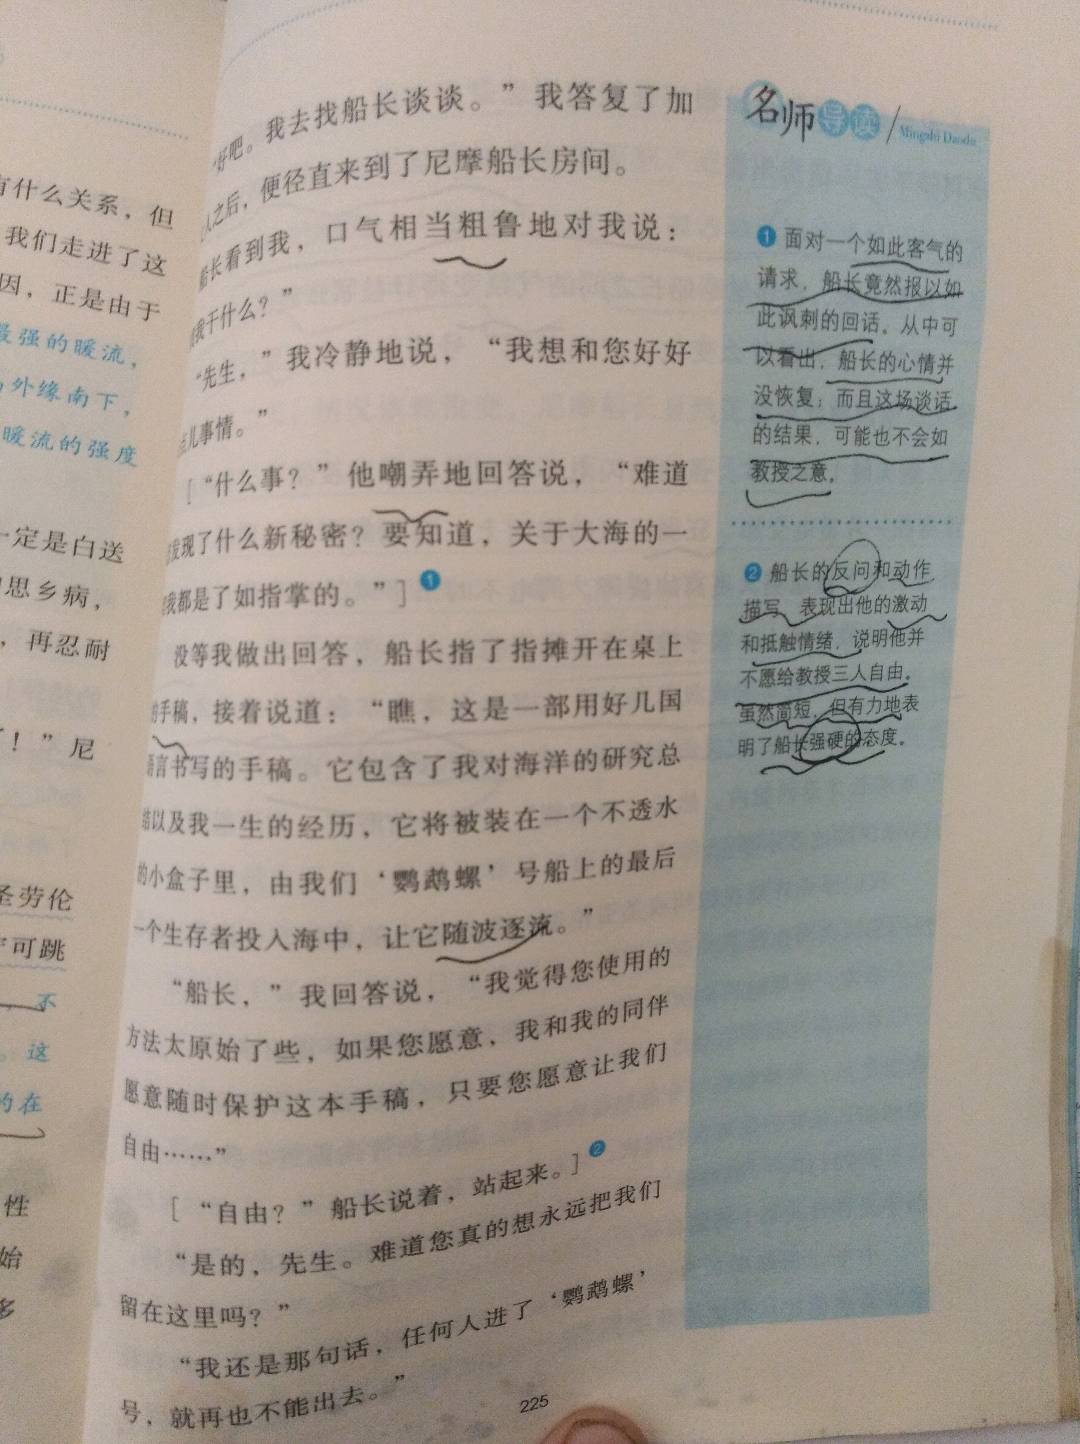 有什么关系，但
我们走进了这
因，正是由于
最强的暖流，
外缘南下，
暖流的强度
一定是白送
思乡病，
，再忍耐
！”尼
圣劳伦
可跳
，不
。这
的在
性
始
多
“好吧。我去找船长谈谈。”我答复了加
人之后，便径直来到了尼摩船长房间。
船长看到我，口气相当粗鲁地对我说：
我干什么？”
“先生，”我冷静地说，“我想和您好好
点儿事情。”
[“什么事？”他嘲弄地回答说，“难道
发现了什么新秘密？要知道，关于大海的一
我都是了如指掌的。”]1
没等我做出回答，船长指了指摊开在桌上
的手稿，接着说道：“瞧，这是一部用好几国
语言书写的手稿。它包含了我对海洋的研究总
结以及我一生的经历，它将被装在一个不透水
的小盒子里，由我们‘鹦鹉螺’号船上的最后
一个生存者投入海中，让它随波逐流。”
“船长，”我回答说，“我觉得您使用的
方法太原始了些，如果您愿意，我和我的同伴
愿意随时保护这本手稿，只要您愿意让我们
自由……”
[“自由？”船长说着，站起来。]2
“是的，先生。难道您真的想永远把我们
留在这里吗？”
“我还是那句话，任何人进了‘鹦鹉螺’
号，就再也不能出去。”
225
名师导读/Mingshi Daodu
1 面对一个如此客气的
请求，船长竟然报以如
此讽刺的回话。从中可
以看出，船长的心情并
没恢复；而且这场谈话
的结果，可能也不会如
教授之意。
2 船长的反问和动作
描写，表现出他的激动
和抵触情绪，说明他并
不愿给教授三人自由。
虽然简短，但有力地表
明了船长强硬的态度。